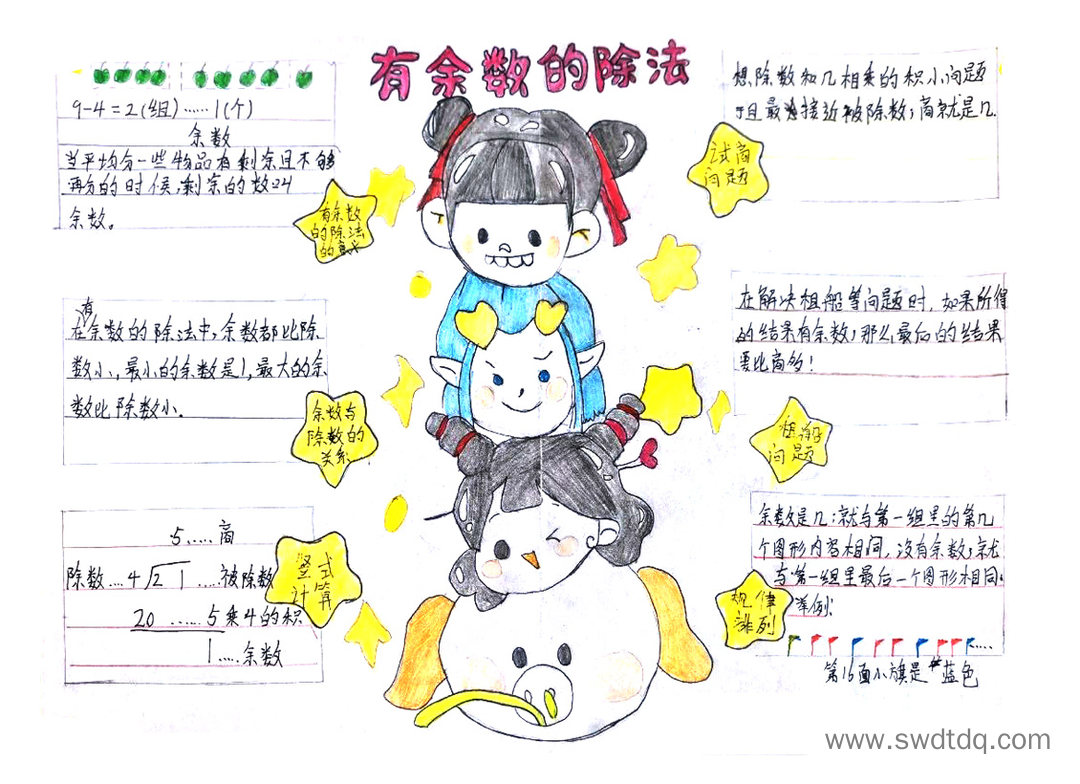 有余数的除法
9-4=2(组)……1(个)
余数
当平均分一些物品有剩余且不够
再分的时候,剩余的数叫
余数。
有余数
的除法
的意义
在有余数的除法中,余数都比除
数小,最小的余数是1,最大的余
数比除数小.
余数与
除数的
关系
5.....商
除数...4√21....被除数
20......5乘4的积
1....余数
竖式
计算
想除数和几相乘的积小问题
于且最接近被除数,商就是几.
试商
问题
在解决租船等问题时,如果所得
的结果有余数,那么最后的结果
要比商多!
租船
问题
余数是几,就与第一组里的第几
个图形内容相同,没有余数,就
与第一组里最后一个图形相同。
举例:
规律
排列
第16面小旗是蓝色
www.swdtdq.com